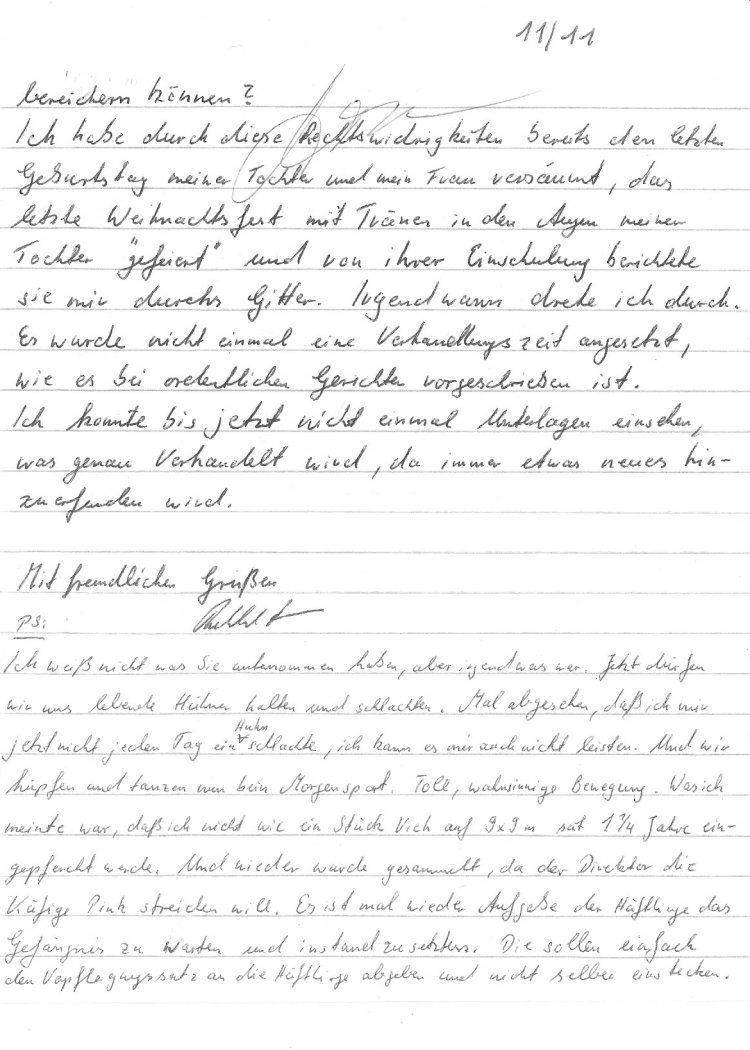 11/11
bereichern können?
Ich habe durch diese Rechtswidrigkeiten bereits den letzten
Geburtstag meiner Tochter und mein Frau versäumt, das
letzte Weihnachtsfest mit Tränen in den Augen meiner
Tochter "gefeiert" und von ihrer Einschulung berichtete
sie mir durchs Gitter. Irgendwann drehe ich durch.
Es wurde nicht einmal eine Verhandlungszeit angesetzt,
wie es bei ordentlichen Gerichten vorgeschrieben ist.
Ich konnte bis jetzt nicht einmal Unterlagen einsehen,
was genau Verhandelt wird, da immer etwas neues hin-
zuerfunden wird.
Mit freundlichen Grüßen
PS:
Ich weiß nicht was Sie unternommen haben, aber irgendwas war. Jetzt dürfen
wir uns lebende Hühner halten und schlachten. Mal abgesehen, daß ich mir
jetzt nicht jeden Tag ein Huhn schlachte, ich kann es mir auch nicht leisten. Und wir
hüpfen und tanzen nun beim Morgensport. Toll, wahnsinnige Bewegung. Was ich
meinte war, daß ich nicht wie ein Stück Vieh auf 9x9m seit 1 3/4 Jahre ein-
gepfercht werde. Und wieder wurde gesammelt, da der Direktor die
Käfige Pink streichen will. Es ist mal wieder Aufgabe der Häftlinge das
Gefängnis zu warten und instandzusetzten. Die sollen einfach
den Verpflegungssatz an die Häftlinge abgeben und nicht selber einstecken.